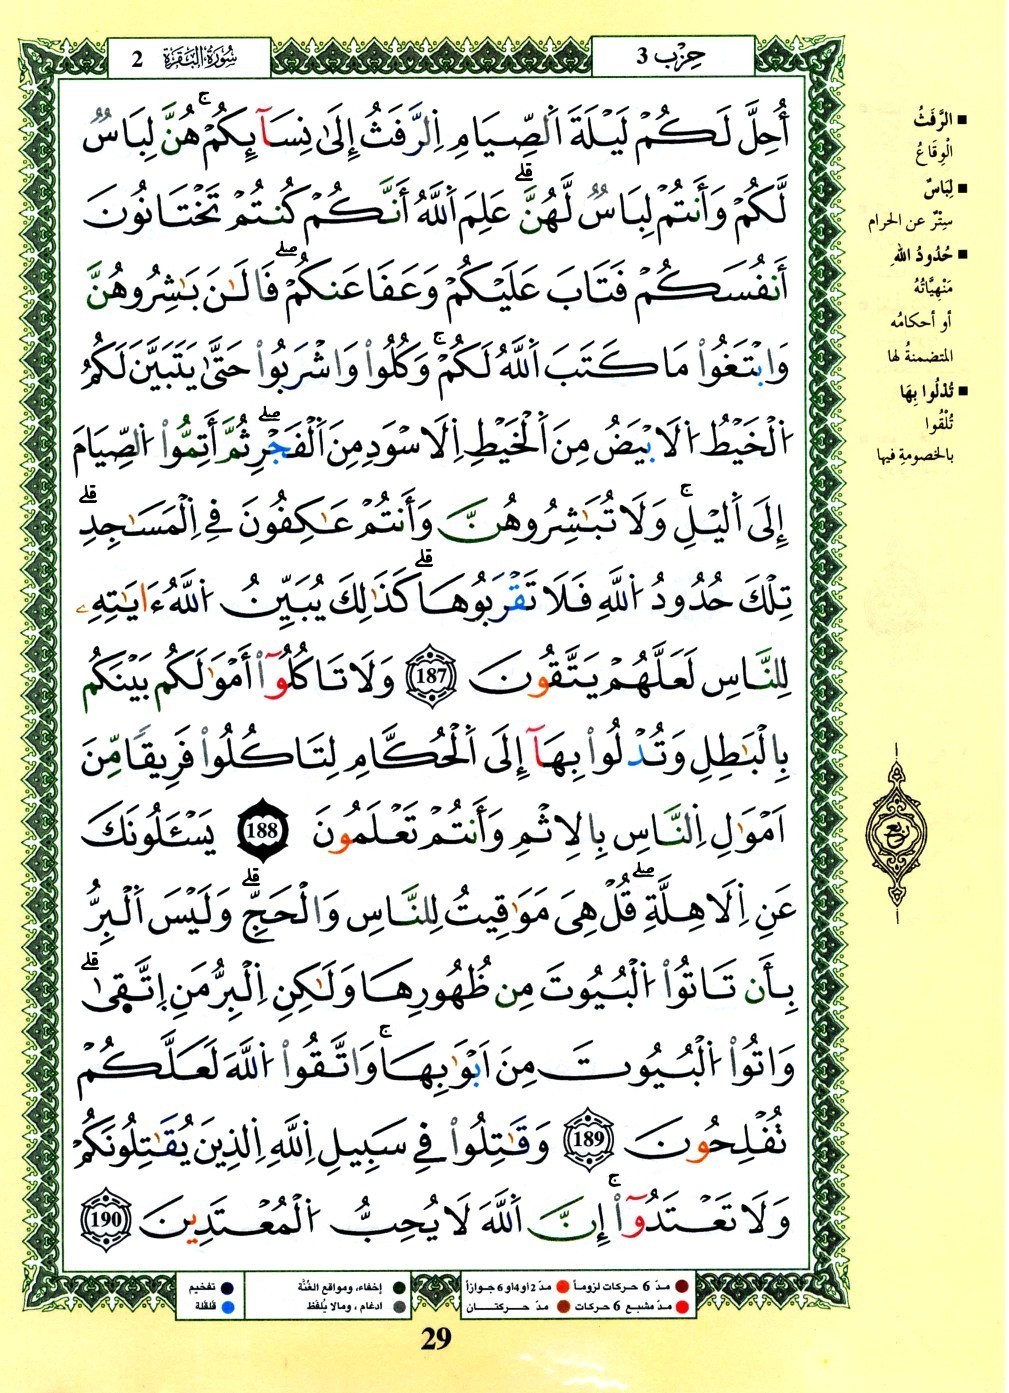 سُورَةُ البَقَرَة 2
حِزْب 3
أُحِلَّ لَكُمْ لَيْلَةَ اَ۬لصِّيَامِ اِ۬لرَّفَثُ إِلَىٰ نِسَآئِكُمْ هُنَّ لِبَاسٌ
لَّكُمْ وَأَنتُمْ لِبَاسٌ لَّهُنَّ عَلِمَ اَ۬للَّهُ أَنَّكُمْ كُنتُمْ تَخْتَانُونَ
أَنفُسَكُمْ فَتَابَ عَلَيْكُمْ وَعَفَا عَنكُمْ فَالَٰنَ بَٰشِرُوهُنَّ
وَابْتَغُواْ مَا كَتَبَ اَ۬للَّهُ لَكُمْ وَكُلُواْ وَاشْرَبُواْ حَتَّىٰ يَتَبَيَّنَ لَكُمُ
اُ۬لْخَيْطُ اُ۬لَابْيَضُ مِنَ اَ۬لْخَيْطِ اِ۬لَاسْوَدِ مِنَ اَ۬لْفَجْرِ ثُمَّ أَتِمُّواْ اُ۬لصِّيَامَ
إِلَى اَ۬ليْلِ وَلَا تُبَٰشِرُوهُنَّ وَأَنتُمْ عَٰكِفُونَ فِے اِ۬لْمَسَٰجِدِ
تِلْكَ حُدُودُ اُ۬للَّهِ فَلَا تَقْرَبُوهَا كَذَٰلِكَ يُبَيِّنُ اُ۬للَّهُ ءَايَٰتِهِۦ
لِلنَّاسِ لَعَلَّهُمْ يَتَّقُونَ 187 وَلَا تَاكُلُوٓاْ أَمْوَٰلَكُم بَيْنَكُم
بِالْبَٰطِلِ وَتُدْلُواْ بِهَآ إِلَى اَ۬لْحُكَّامِ لِتَاكُلُواْ فَرِيقًا مِّنَ
اَمْوَٰلِ اِ۬لنَّاسِ بِالِاثْمِ وَأَنتُمْ تَعْلَمُونَ 188 يَسْـَٔلُونَكَ
عَنِ اِ۬لَاهِلَّةِ قُلْ هِيَ مَوَٰقِيتُ لِلنَّاسِ وَالْحَجِّ وَلَيْسَ اَ۬لْبِرُّ
بِأَن تَاتُواْ اُ۬لْبُيُوتَ مِن ظُهُورِهَا وَلَٰكِنِ اِ۬لْبِرُّ مَنِ اِ۪تَّق۪ىٰ
وَاتُواْ اُ۬لْبُيُوتَ مِنَ اَبْوَٰبِهَا وَاتَّقُواْ اُ۬للَّهَ لَعَلَّكُمْ
تُفْلِحُونَ 189 وَقَٰتِلُواْ فِے سَبِيلِ اِ۬للَّهِ اِ۬لذِينَ يُقَٰتِلُونَكُمْ
وَلَا تَعْتَدُوٓاْ إِنَّ اَ۬للَّهَ لَا يُحِبُّ اُ۬لْمُعْتَدِينَ 190
■ الرَّفَثُ
الْوِقَاعُ
■ لِبَاسٌ
سِتْرٌ عن الحرام
■ حُدُودُ اللهِ
مَنْهِيَّاتُهُ
أو أحكامُه
المتضمنةُ لها
■ تُدْلُوا بِهَا
تُلْقُوا
بالخصومةِ فيها
ربع
مدّ 6 حركات لزوماً
مدّ 2 أو 4 أو 6 جوازاً
إخفاء، ومواقع الغُنَّة
تفخيم
مدّ مشبع 6 حركات
مدّ حركتان
ادغام ، وما لا يُلفَظ
قلقلة
29